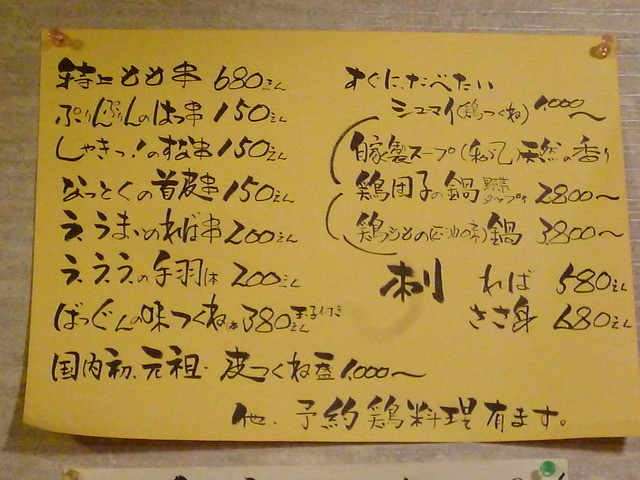 特上もも串 680えん
ぷりんぷりんのはつ串 150えん
しゃきっ!のずり串 150えん
なっとくの首皮串 150えん
う、うまいのれば串 200えん
う、うう、の手羽 200えん
ばつぐんの味つくね 380えん 玉子付き
国内初、元祖・皮つくね盛 1,000〜
すぐに、たべたい
シューマイ(鶏つくね) 1,000〜
自家製スープ 天然の香り
鶏団子の鍋 野菜タップリ 2800〜
鶏もも の 鍋 3800〜
刺 れば 580えん
ささ身 680えん
他、予約鶏料理有ます。